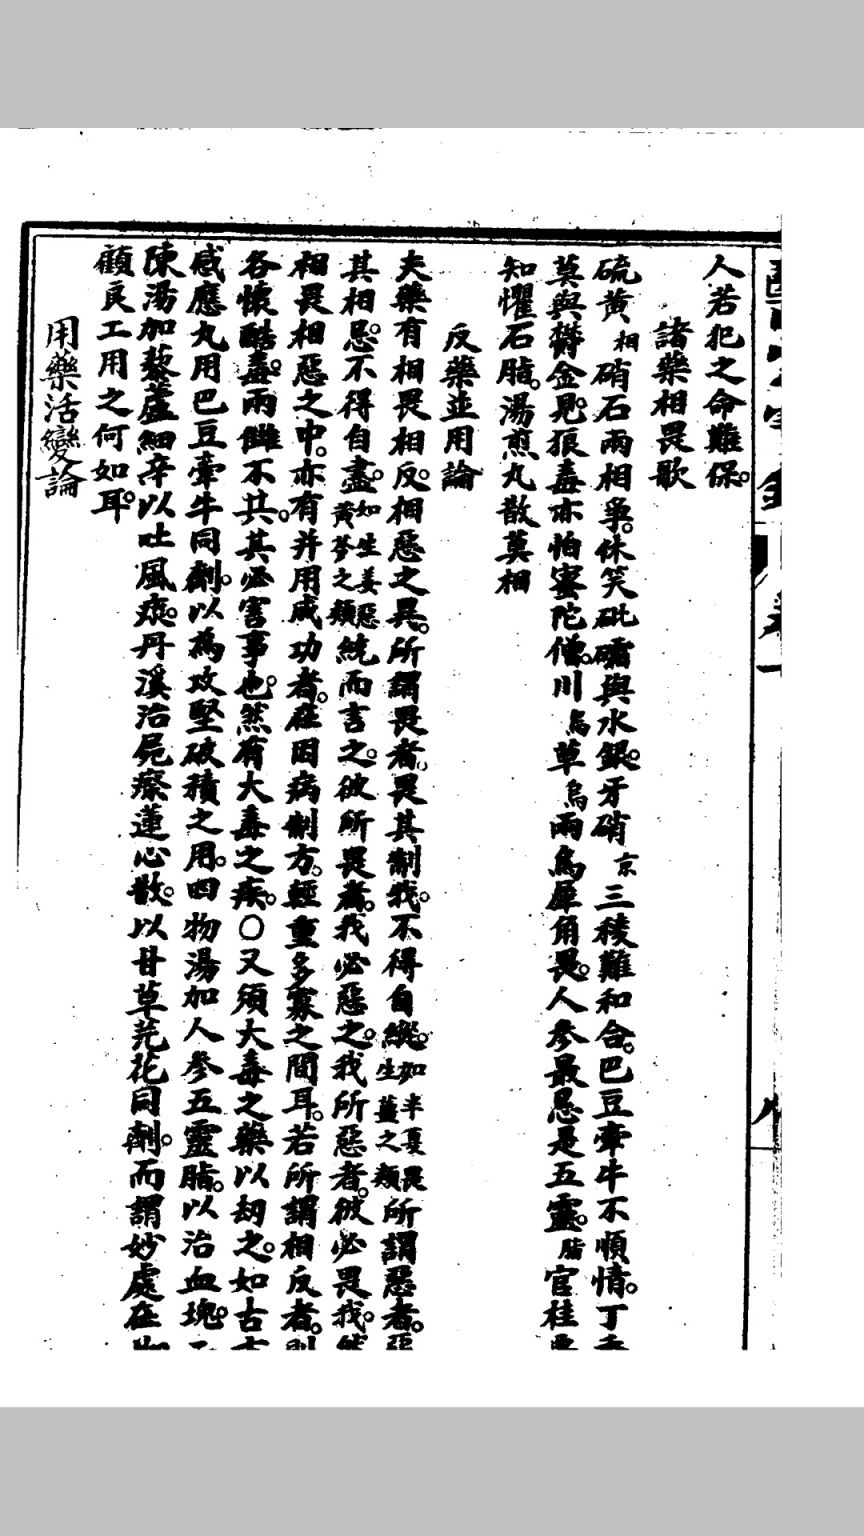 人若犯之命難保。
諸藥相畏歌
硫黄相硝石兩相爭。休笑砒礵與水銀。牙硝京三稜難和合。巴豆牽牛不順情。丁
莫與欝金見。狼毒亦怕蜜陀僧。川烏草烏兩烏犀角畏。人參最忌是五靈。脂官桂
知懼石脂。湯煎丸散莫相
反藥並用論
夫藥有相畏相反。相惡之異。所謂畏者。畏其制我。不得自縱。如半夏畏生薑之類所謂惡者。
其相忌。不得自盡。如生姜惡黄芩之類統而言之。彼所畏者。我必惡之。我所惡者。彼必畏我。然
相畏相惡之中。亦有并用成功者。在因病制方。輕重多寡之間耳。若所謂相反者。則
各懷酷毒。兩讎不共。其必害事也。然有大毒之疾。○又須大毒之藥以劫之。如古
感應丸用巴豆牽牛同劑。以為攻堅破積之用。四物湯加人參五靈脂。以治血塊。
陳湯加藜蘆細辛以吐風痰。丹溪治屍瘵蓮心散。以甘草芫花同劑。而謂妙處在
顧良工用之何如耳。
用藥活變論